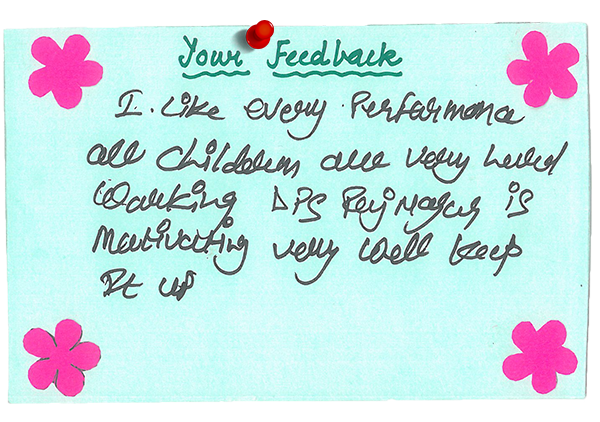 Your Feedback
I. Like every Performance
all Children are very hard
Working DPS Rajnagar is
Motivating very well keep
It up